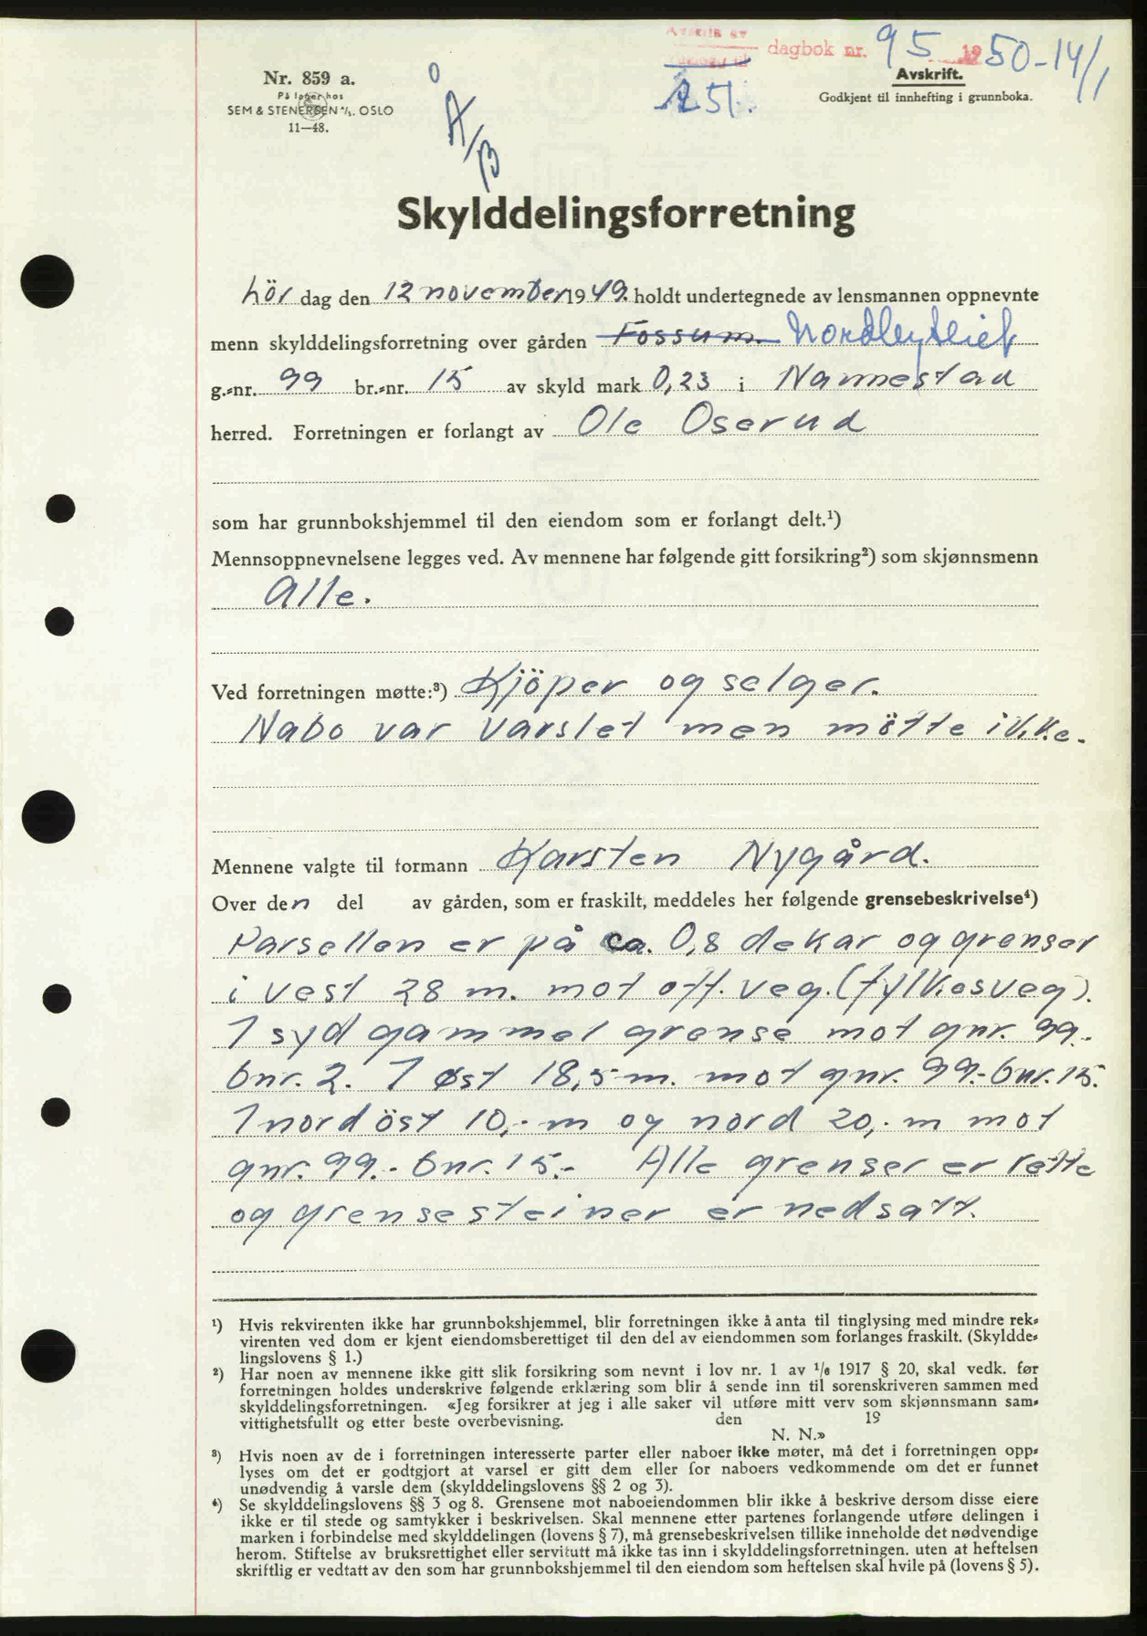 Avskrift av
dagbok nr. 95 1950-14/1
251.
Nr. 859 a.
På lager hos
SEM & STENERSEN A/S. OSLO
11—48.
A/B
Avskrift.
Godkjent til innhefting i grunnboka.
Skylddelingsforretning
Lör dag den 12 november 1949. holdt undertegnede av lensmannen oppnevnte
menn skylddelingsforretning over gården Fossum.
g.-nr. 99 br.-nr. 15 av skyld mark 0,23 i Nannestad
herred. Forretningen er forlangt av Ole Oserud
som har grunnbokshjemmel til den eiendom som er forlangt delt.¹)
Mennsoppnevnelsene legges ved. Av mennene har følgende gitt forsikring²) som skjønnsmenn
Alle.
Ved forretningen møtte:³) Kjöper og selger.
Nabo var varslet men mötte ikke.
Mennene valgte til formann Karsten Nygård.
Over den del av gården, som er fraskilt, meddeles her følgende grensebeskrivelse⁴)
Parsellen er på ca. 0,8 dekar og grenser
i vest 28 m. mot off. veg. (fylkesveg).
I syd gammel grense mot gnr. 99.-
bnr. 2. I øst 18,5 m. mot gnr. 99.- bnr. 15.
I nordöst 10,- m og nord 20,- m mot
gnr. 99.- bnr. 15.- Alle grenser er rette
og grensesteiner er nedsatt.
¹) Hvis rekvirenten ikke har grunnbokshjemmel, blir forretningen ikke å anta til tinglysing med mindre rek-
virenten ved dom er kjent eiendomsberettiget til den del av eiendommen som forlanges fraskilt. (Skyldde-
lingslovens § 1.)
²) Har noen av mennene ikke gitt slik forsikring som nevnt i lov nr. 1 av 1/6 1917 § 20, skal vedk. før
forretningen holdes underskrive følgende erklæring som blir å sende inn til sorenskriveren sammen med
skylddelingsforretningen. «Jeg forsikrer at jeg i alle saker vil utføre mitt verv som skjønnsmann sam-
vittighetsfullt og etter beste overbevisning. den 19
N. N.»
³) Hvis noen av de i forretningen interesserte parter eller naboer ikke møter, må det i forretningen opp-
lyses om det er godtgjort at varsel er gitt dem eller for naboers vedkommende om det er funnet
unødvendig å varsle dem (skylddelingslovens §§ 2 og 3).
⁴) Se skylddelingslovens §§ 3 og 8. Grensene mot naboeiendommen blir ikke å beskrive dersom disse eiere
ikke er til stede og samtykker i beskrivelsen. Skal mennene etter partenes forlangende utføre delingen i
marken i forbindelse med skylddelingen (lovens § 7), må grensebeskrivelsen tillike inneholde det nødvendige
herom. Stiftelse av bruksrettighet eller servitutt må ikke tas inn i skylddelingsforretningen. uten at heftelsen
skriftlig er vedtatt av den som har grunnbokshjemmel til den eiendom som heftelsen skal hvile på (lovens § 5).